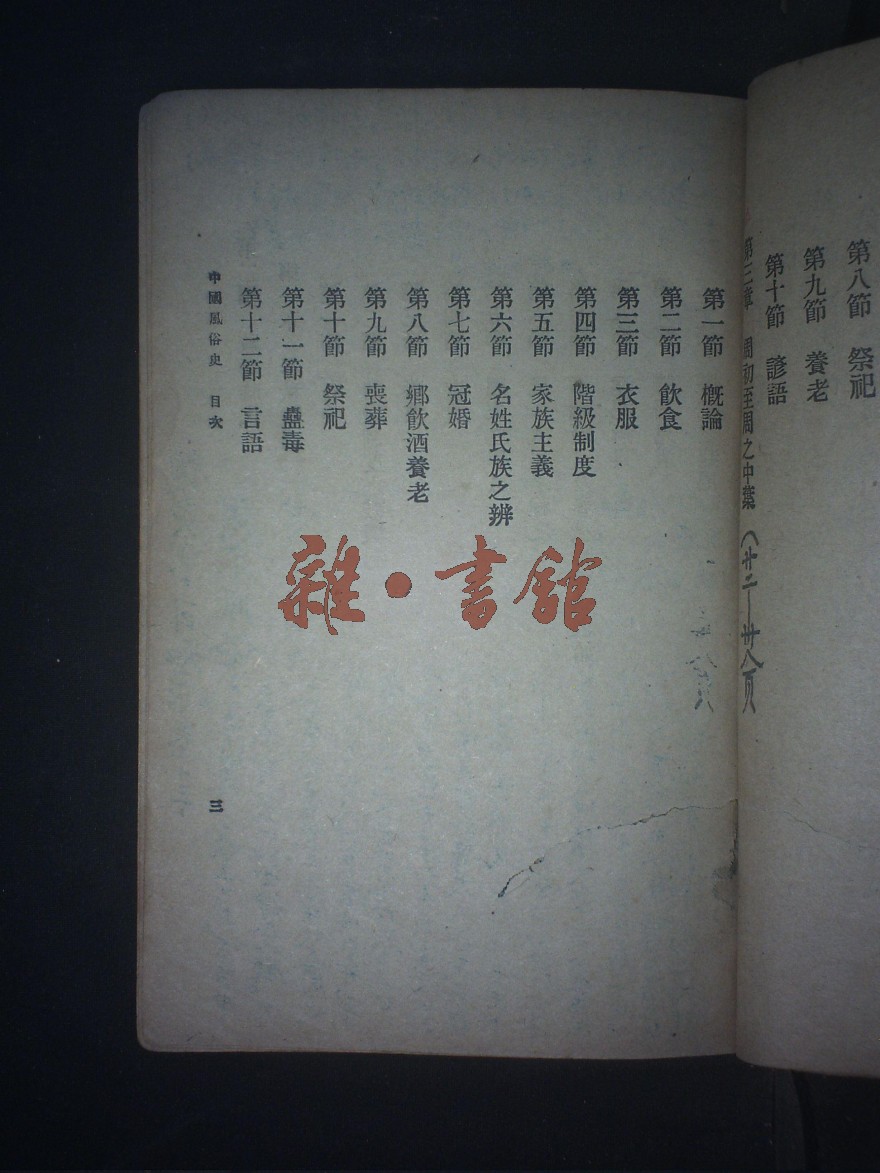 第八節　祭祀
第九節　養老
第十節　諺語
第三章　周初至周之中葉（廿二—卅八頁
第一節　概論
第二節　飲食
第三節　衣服
第四節　階級制度
第五節　家族主義
第六節　名姓氏族之辨
第七節　冠婚
第八節　鄉飲酒養老
第九節　喪葬
第十節　祭祀
第十一節　蠱毒
第十二節　言語
中國風俗史　目次
三
雜・書館